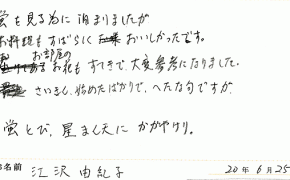 蛍を見る為に泊まりましたが
お料理もすばらしくおいしかったです。
お部屋の
お花もすてきで大変参考になりました。
さいきん始めたばかりで、へたな句ですが、
蛍とび、星まく天にかがやけり。
お名前 江沢由紀子 20年6月25